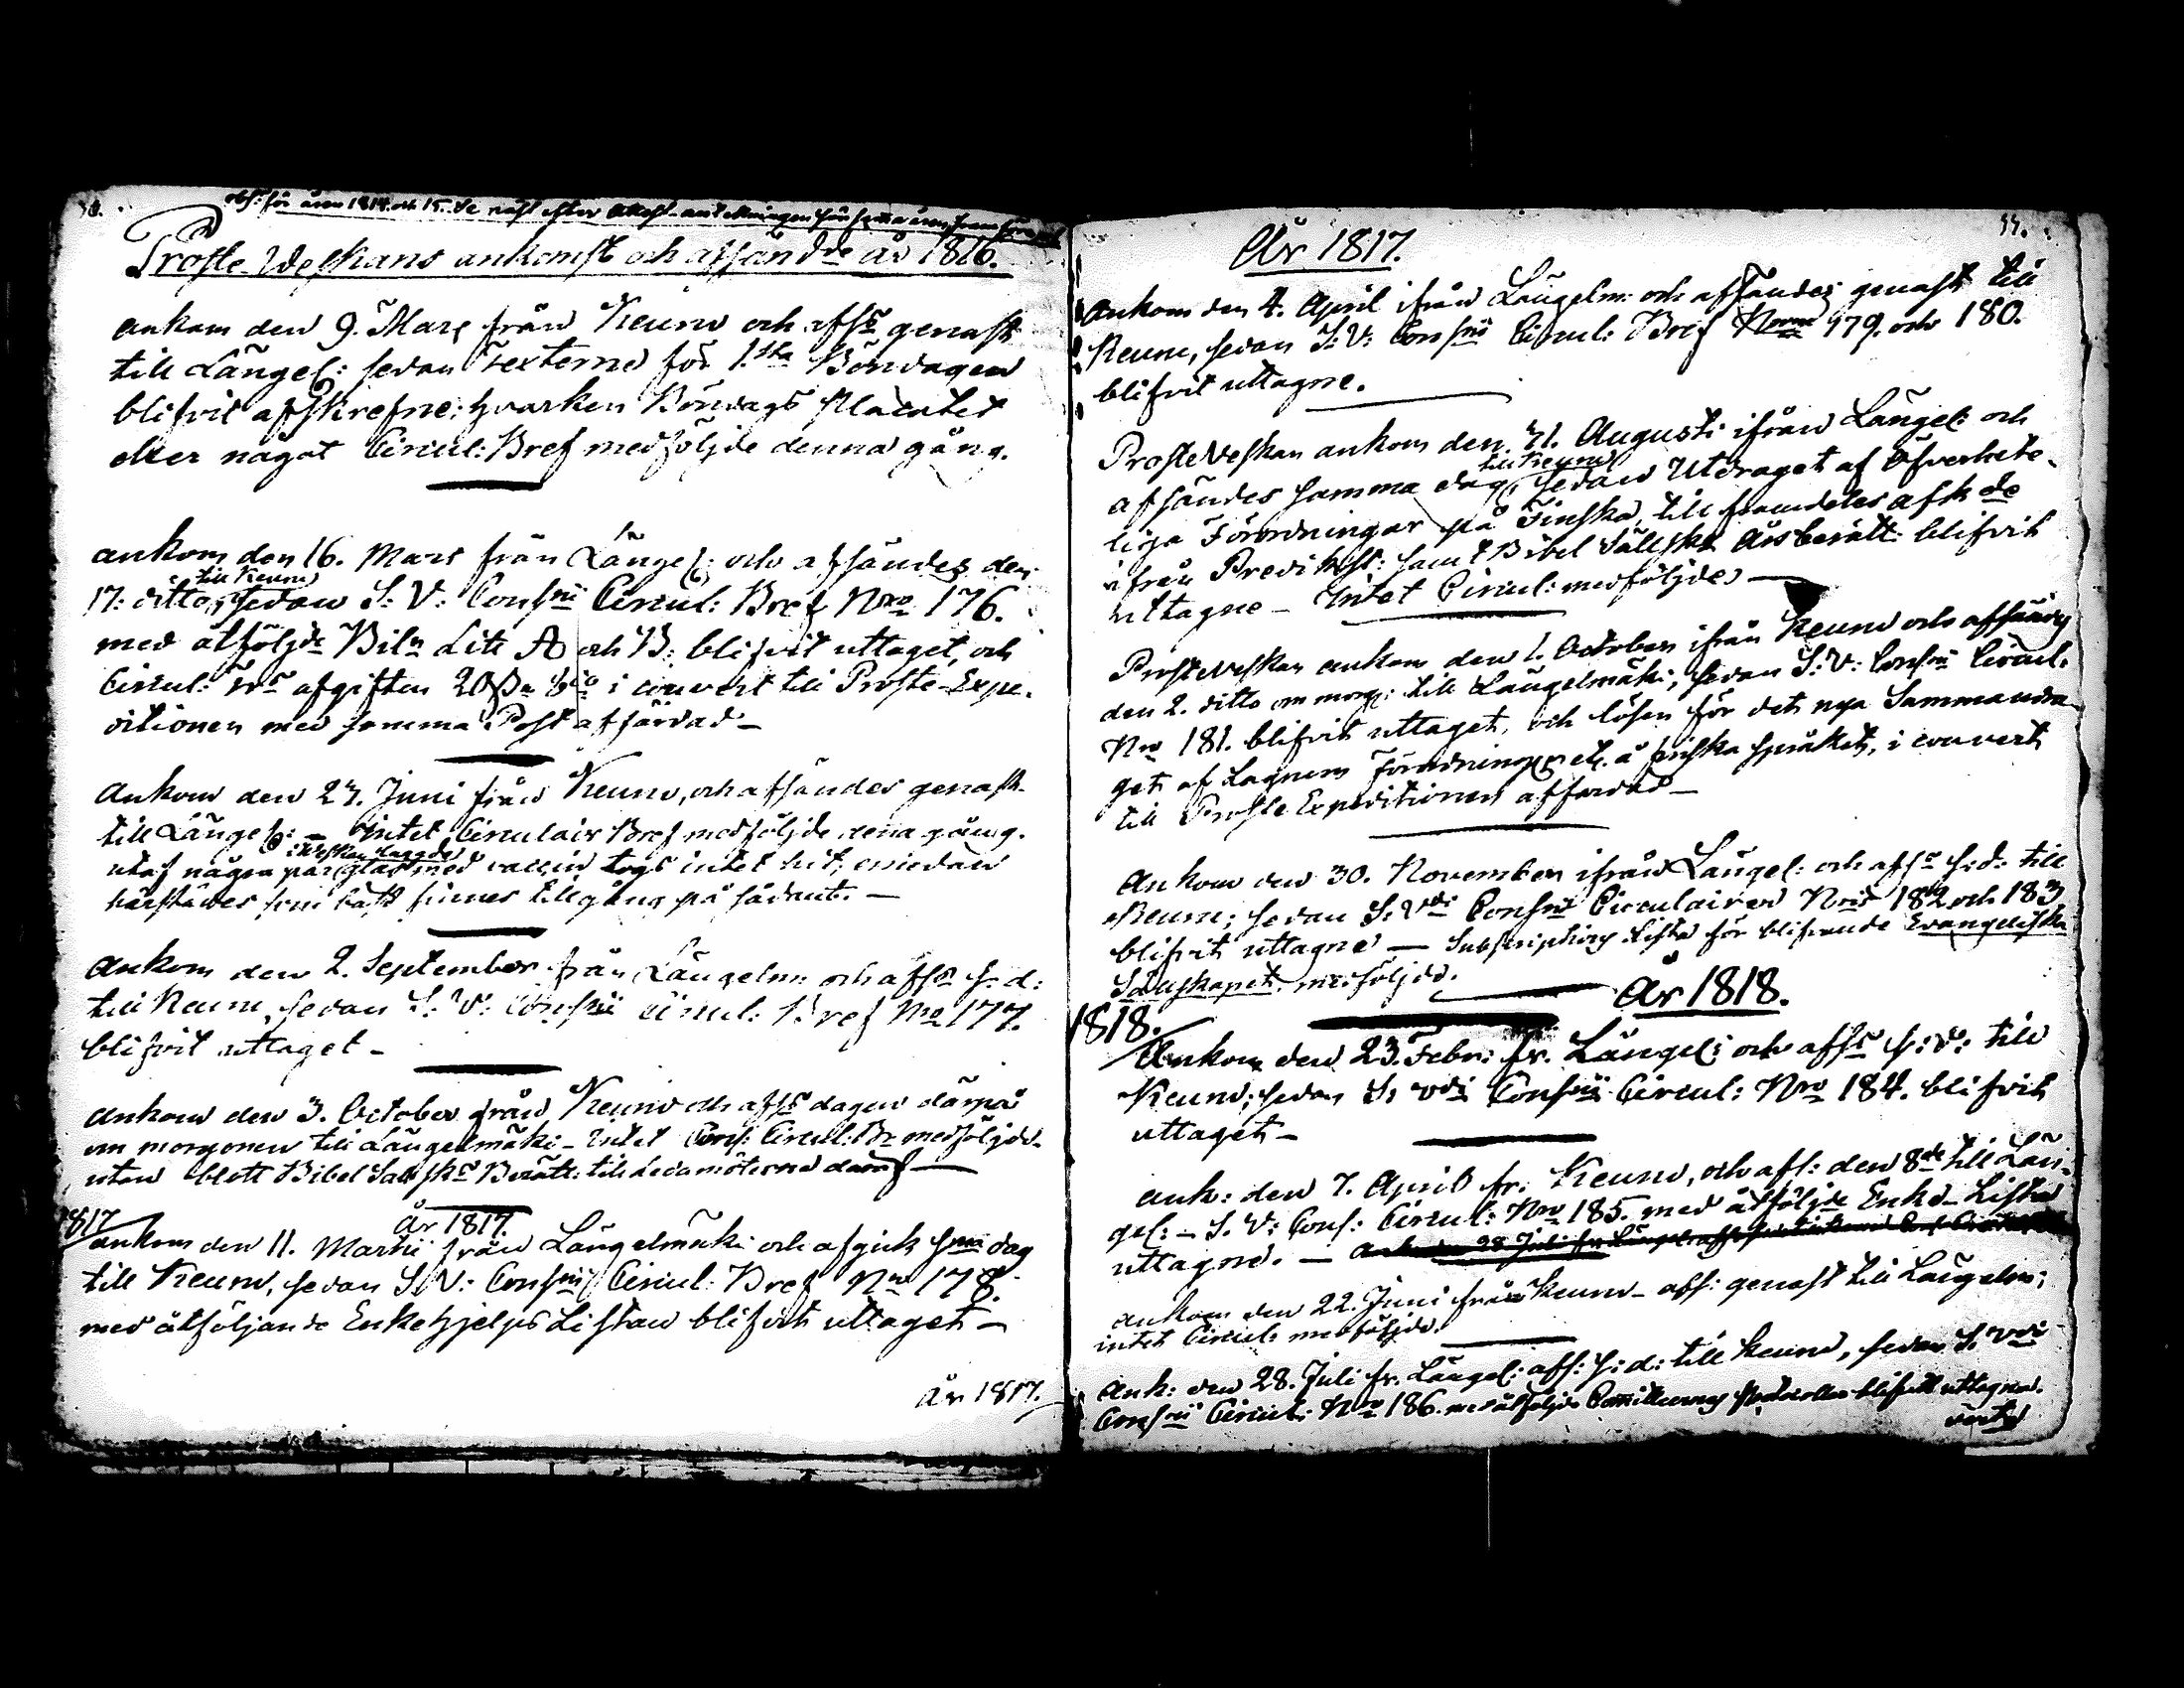 obs: för åren 1814 och 15. se näst efter
Proste Weskans ankomst och afsände år 1816.
ankom den 9. Mars från Keuru och afs:s genast
till Längel: sedan Texterne för 1.sta Böndagen
blifvit afskrefne; hvarken Böndags Placatet
eller något Circul: Bref medföljde denna gång.
ankom den 16. Mars från Längel: och afsändes den
till Keuru
17: ditto, sedan S: V: Cons:rii Circul: Bref Nro 176.
med åtföljde Bil:r Litt A och B: blifvit uttaget, och
Circul: afgiften i couvert till Proste-Expe-
ditionen med samma Post affärdad _
Ankom den 23. Juni från Keuru, och afsändes genast
till Längel: _ Intet Circulair Bref medföljde dena gång.
i Weskan
utaf några par glas med vaccin togs intet hit, emedan
härstädes finnes tillgång på sådant. _
Ankom den 2. September från Längelm: och afs:s s: d:
till Keuru, sedan S: V: Cons:rii Circul: Bref Nro 177.
blifvit uttaget _
Ankom den 3. October från Keuru och afs:s dagen därpå
om morgonen till Längelmäki _ Intet Cons: Circul: Br medföljde
utan blott Bibel Sälsk:s Berätt: till Ledamöterne däraf _
År 1817.
1817
ankom den 11. Martii från Längelmäki och afgick s:ma dag
till Keuru, sedan S: V: Cons:rii Circul: Bref Nro 178.
med åtföljande Enkehjelps Listan blifvit uttaget _
År 1817.
År 1817.
Ankom den 4. April ifrån Längelm: och afsändes genast till
Keuru, sedan S: V: Cons:rii Circul: Bref Nrne 179. och 180.
blifvit uttagne.
Proste Weskan ankom den 31. Augusti ifrån Längel: och
till Keuru
afsändes samma dag, sedan Utdraget af Öfverhete-
liga Förordningar på Finska, till framdeles afk de
ifrån Predikst: samt Bibel Sällsk: Årsberätt: blifvit
uttagne _ Intet Circul: medföljde _
Prosteweskan ankom den 1. October ifrån Keuru och afsändes
den 2. ditto om morg: till Längelmäki, sedan S: V: Cons:rii Circul:
Nro 181. blifvit uttaget, och lösen för det nya Sammandra-
get af Lagnens Förordningar etc. å finska språket, i couvert
till Proste Expeditionen affärdad _
Ankom den 30. November ifrån Längel: och afs:s s: d: till
Keuru; sedan S: V:di Cons:rii Circulairen Nris 182 och 183
blifvit uttagne _ Subscriptions Lista för blifvande Evangeliska
Sälskapet medföljde.
År 1818.
1818.
Ankom den 23. Febr: fr. Längel: och afs:s s: d: till
Keuru; sedan S: vdi Cons:rii Circul: Nro 184. blifvit
uttaget _
ank: den 7. April fr. Keuru, och afs: den 8de till Län-
gel: _ S. V: Cons: Circul: Nro 185. med åtföljde Enke Listan
uttagne. _
ankom den 22. Juni från Keuru _ afs: genast till Längelm;
intet Circul: medföljde.
Ank: den 28. Juli fr. Längel: afs: s: d: till Keuru, sedan S. vdi
Cons:rii Circul: Nro 186. med åtföljde blifvit uttagne.
vertas